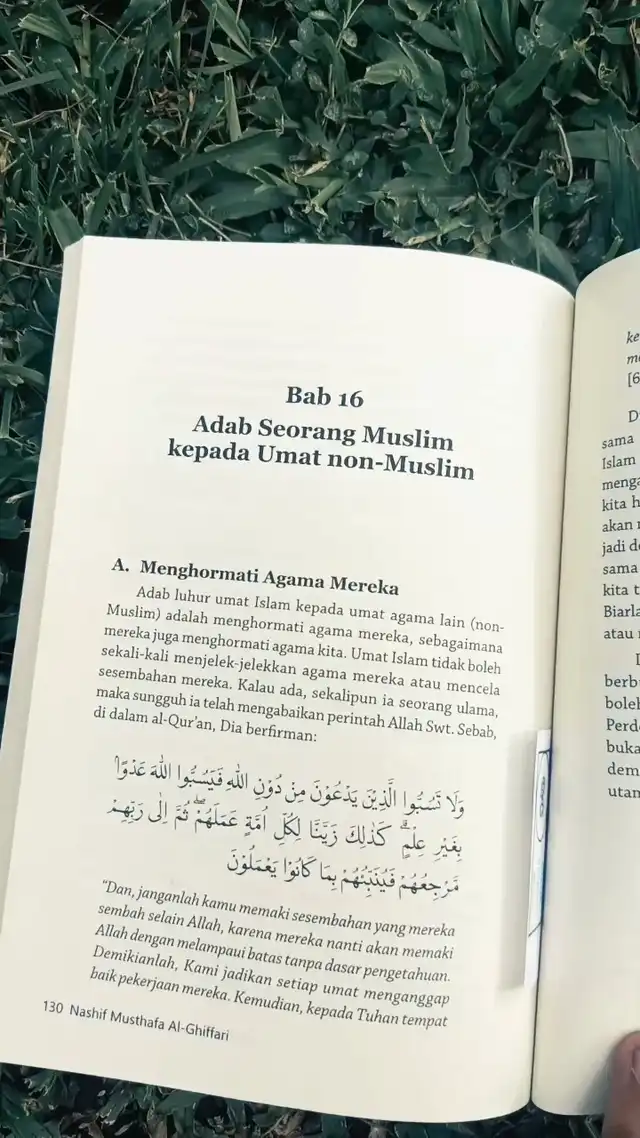 Bab 16
Adab Seorang Muslim
kepada Umat non-Muslim
A. Menghormati Agama Mereka
Adab luhur umat Islam kepada umat agama lain (non-
Muslim) adalah menghormati agama mereka, sebagaimana
mereka juga menghormati agama kita. Umat Islam tidak boleh
sekali-kali menjelek-jelekkan agama mereka atau mencela
sesembahan mereka. Kalau ada, sekalipun ia seorang ulama,
maka sungguh ia telah mengabaikan perintah Allah Swt. Sebab,
di dalam al-Qur'an, Dia berfirman:
وَلَا تَسُبُّوا الَّذِيْنَ يَدْعُوْنَ مِنْ دُوْنِ اللّٰهِ فَيَسُبُّوا اللّٰهَ عَدْوًاۢ
بِغَيْرِ عِلْمٍۗ كَذٰلِكَ زَيَّنَّا لِكُلِّ اُمَّةٍ عَمَلَهُمْۖ ثُمَّ اِلٰى رَبِّهِمْ
مَّرْجِعُهُمْ فَيُنَبِّئُهُمْ بِمَا كَانُوْا يَعْمَلُوْنَ
"Dan, janganlah kamu memaki sesembahan yang mereka
sembah selain Allah, karena mereka nanti akan memaki
Allah dengan melampaui batas tanpa dasar pengetahuan.
Demikianlah, Kami jadikan setiap umat menganggap
baik pekerjaan mereka. Kemudian, kepada Tuhan tempat
130 Nashif Musthafa Al-Ghiffari
ke
[6
D
sama
Islam
menga
kita h
akan
jadi d
sama
kita t
Biarla
atau
berb
boleh
Perd
buka
dem
utan